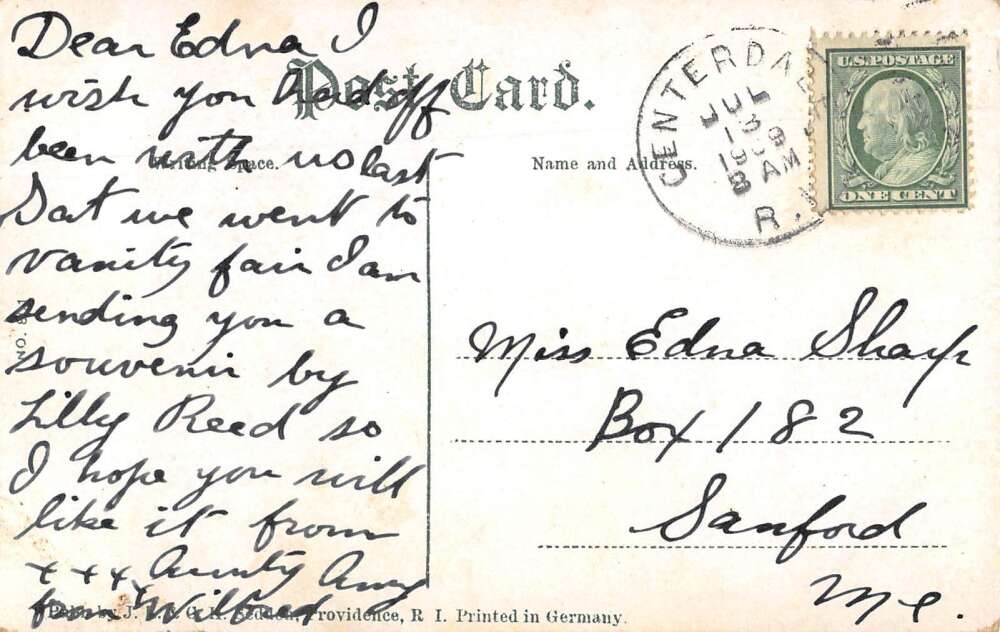 Dear Edna I
wish you had off
been with us last
Sat we went to
vanity fair I am
sending you a
souvenir by
Lilly Reed so
I hope you will
like it from
x x x x Aunty Amy
from Wilfred
Post Card.
Writing Space.
Name and Address.
CENTERDA
JUL
13
1909
8 AM
R.
U.S. POSTAGE
ONE CENT
Miss Edna Sharp
Box 182
Sanford
Me.
NO.
Publ. by J. &. C. H. Seddon, Providence, R I. Printed in Germany.